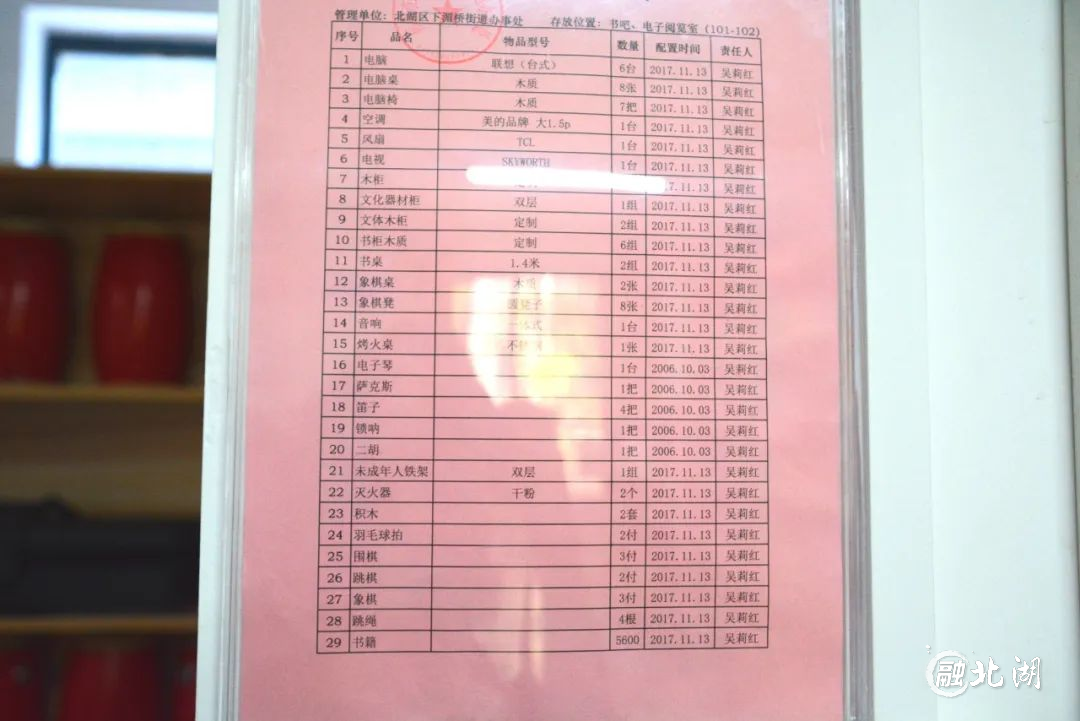 管理单位：北湖区下湄桥街道办事处 存放位置：书吧、电子阅览室（101-102）
序号 品名 物品型号 数量 配置时间 责任人
1 电脑 联想（台式） 6台 2017.11.13 吴莉红
2 电脑桌 木质 8张 2017.11.13 吴莉红
3 电脑椅 木质 7把 2017.11.13 吴莉红
4 空调 美的品牌 大1.5p 1台 2017.11.13 吴莉红
5 风扇 TCL 1台 2017.11.13 吴莉红
6 电视 SKYWORTH 1台 2017.11.13 吴莉红
7 木柜 7.11.13 吴莉红
8 文化器材柜 双层 1组 2017.11.13 吴莉红
9 文体木柜 定制 2组 2017.11.13 吴莉红
10 书柜木质 定制 6组 2017.11.13 吴莉红
11 书桌 1.4米 2组 2017.11.13 吴莉红
12 象棋桌 木质 2张 2017.11.13 吴莉红
13 象棋凳 圆凳子 8张 2017.11.13 吴莉红
14 音响 一体式 1台 2017.11.13 吴莉红
15 烤火桌 1张 2017.11.13 吴莉红
16 电子琴 1台 2006.10.03 吴莉红
17 萨克斯 1把 2006.10.03 吴莉红
18 笛子 4把 2006.10.03 吴莉红
19 锁呐 1把 2006.10.03 吴莉红
20 二胡 1把 2006.10.03 吴莉红
21 未成年人铁架 双层 1组 2017.11.13 吴莉红
22 灭火器 干粉 2个 2017.11.13 吴莉红
23 积木 2套 2017.11.13 吴莉红
24 羽毛球拍 2付 2017.11.13 吴莉红
25 围棋 3付 2017.11.13 吴莉红
26 跳棋 2付 2017.11.13 吴莉红
27 象棋 3付 2017.11.13 吴莉红
28 跳绳 4根 2017.11.13 吴莉红
29 书籍 5600 2017.11.13 吴莉红
融北湖